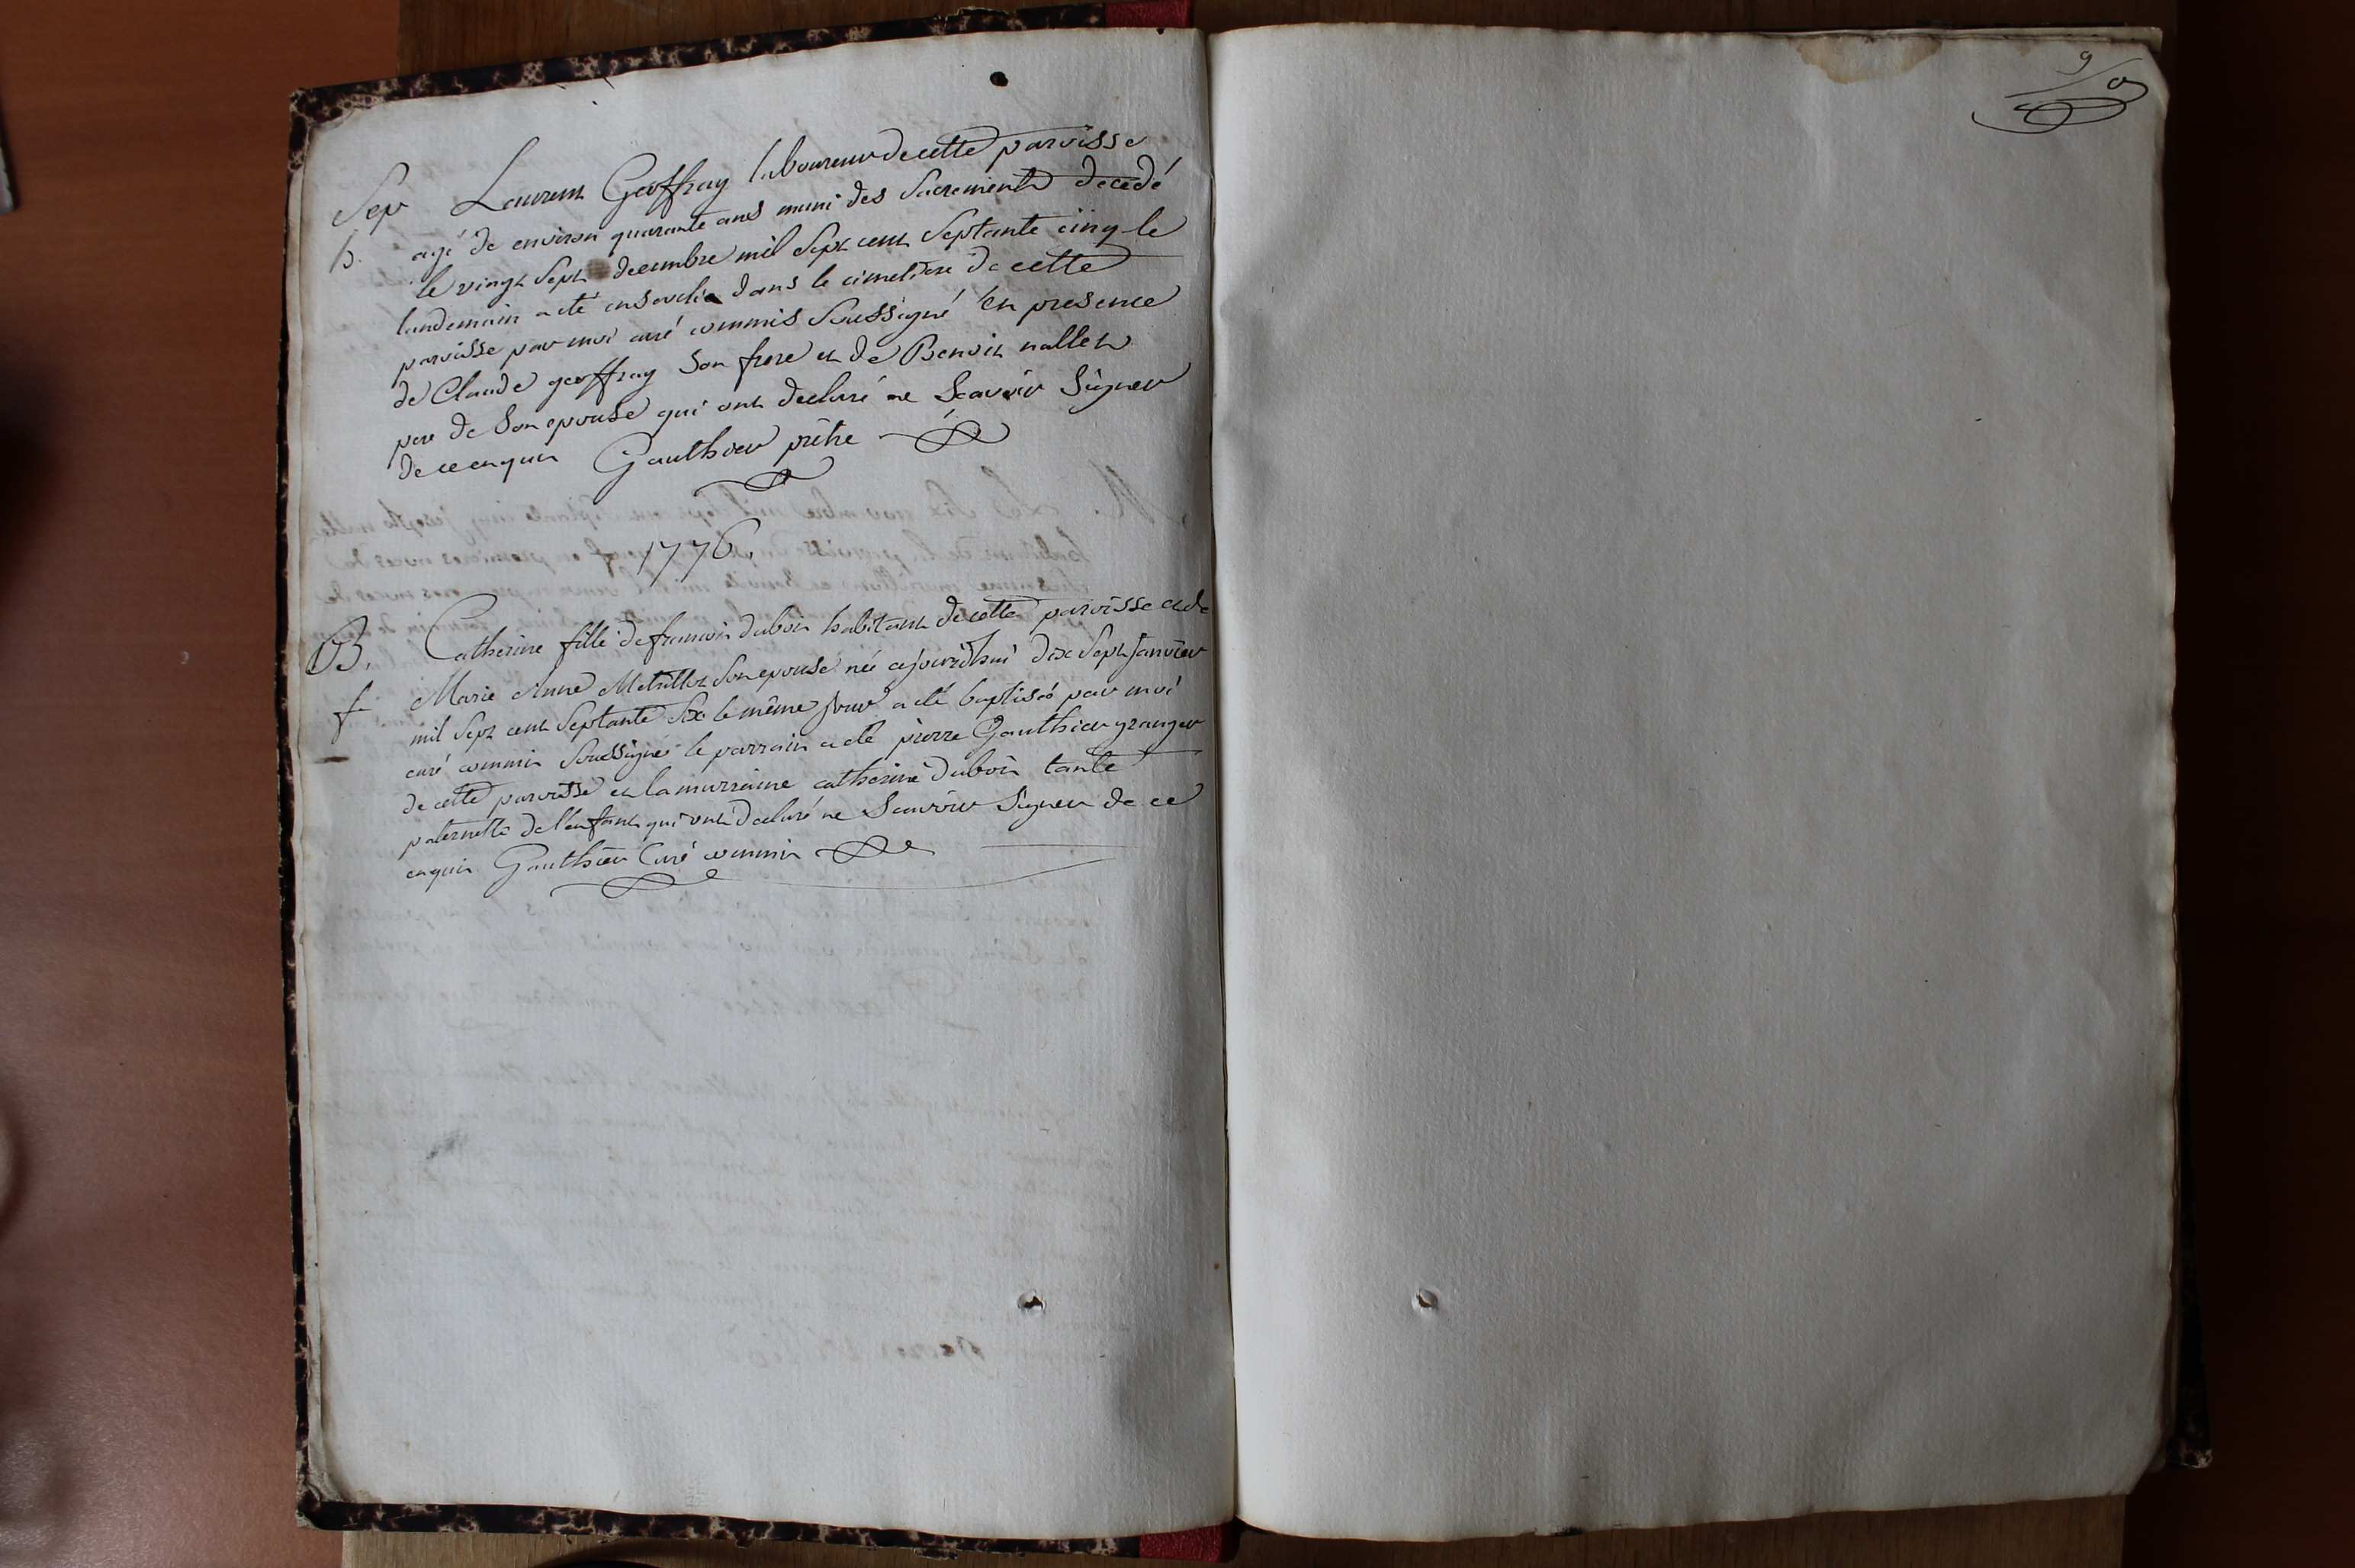 Sep Laurent Geoffray laboureur de cette paroisse
h. agé de environ quarante ans muni des Sacrements decedé
le vingt Sept decembre mil Sept cent Septante cinq le
landemain a été enseveli dans le cimetiere de cette
paroisse par moi curé commis Soussigné en presence
de Claude geoffray Son frere et de Benoit nallet
pere de Son epouse qui ont declaré ne Scavoir Signer
de ce enquis Gauthier prêtre
1776.
B. Catherine fille de francois dubois habitant de cette paroisse et de
f Marie Anne Son epouse née cejourdhui dix Sept janvier
mil Sept cent Septante Six le même jour a été baptisée par moi
curé commis Soussigné le parrain a été pierre Gauthier granger
de cette paroisse et la marraine catherine dubois tante
paternelle de l'enfant qui ont declaré ne Scavoir Signer de ce
enquis Gauthier Curé commis
9